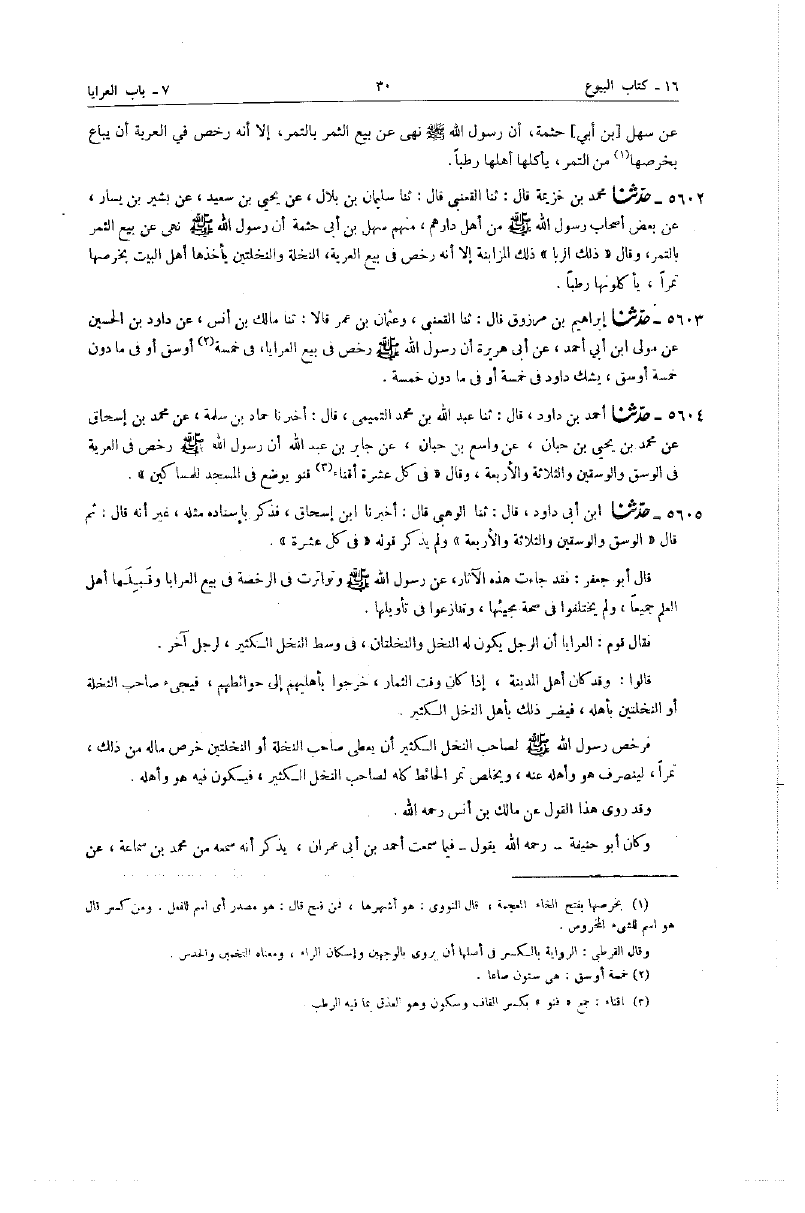 ١٦ - كتاب البيوع ٣٠ ٧ - باب العرايا
عن سهل [بن أبي] حثمة، أن رسول الله ﷺ نهى عن بيع الثمر بالتمر، إلا أنه رخص في العرية أن يباع
بخرصها(١) من التمر، يأكلها أهلها رطباً.
٥٦٠٢ - حدثنا محمد بن خزيمة قال : ثنا القعنبى قال : ثنا سليمان بن بلال ، عن يحيى بن سعيد ، عن بشير بن يسار ،
عن بعض أصحاب رسول الله ﷺ من أهل دارهم ، منهم سهل بن أبى حثمة أن رسول الله ﷺ نهى عن بيع الثمر
بالتمر، وقال « ذلك الربا » ذلك المزابنة إلا أنه رخص فى بيع العرية، النخلة والنخلتين يأخذها أهل البيت بخرصها
تمراً ، يأكلونها رطباً .
٥٦٠٣ - حدثنا إبراهيم بن مرزوق قال : ثنا القعنبى ، وعثمان بن عمر قالا : ثنا مالك بن أنس ، عن داود بن الحسين
عن مولى ابن أبي أحمد ، عن أبى هريرة أن رسول الله ﷺ رخص فى بيع العرايا، فى خمسة(٢) أوسق أو فى ما دون
خمسة أوسق ، يشك داود فى خمسة أو فى ما دون خمسة .
٥٦٠٤ - حدثنا أحمد بن داود ، قال : ثنا عبد الله بن محمد التميمى ، قال : أخبرنا حماد بن سلمة ، عن محمد بن إسحاق
عن محمد بن يحيى بن حبان ، عن واسع بن حبان ، عن جابر بن عبد الله أن رسول الله ﷺ رخص فى العرية
فى الوسق والوسقين والثلاثة والأربعة ، وقال « فى كل عشرة أقناء(٣) قنو يوضع فى المسجد للمساكين » .
٥٦٠٥ - حدثنا ابن أبى داود ، قال : ثنا الوهبى قال : أخبرنا ابن إسحاق ، فذكر بإسناده مثله ، غير أنه قال : ثم
قال « الوسق والوسقين والثلاثة والأربعة » ولم يذكر قوله « فى كل عشرة » .
قال أبو جعفر : فقد جاءت هذه الآثار، عن رسول الله ﷺ وتواترت فى الرخصة فى بيع العرايا وقَبِلَها أهل
العلم جميعاً ، ولم يختلفوا فى صحة مجيئها ، وتنازعوا فى تأويلها .
فقال قوم : العرايا أن الرجل يكون له النخل والنخلتان ، فى وسط النخل الكثير ، لرجل آخر .
قالوا : وقد كان أهل المدينة ، إذا كان وقت الثمار ، خرجوا بأهليهم إلى حوائطهم ، فيجىء صاحب النخلة
أو النخلتين بأهله ، فيضر ذلك بأهل النخل الكثير .
فرخص رسول الله ﷺ لصاحب النخل الكثير أن يعطى صاحب النخلة أو النخلتين خرص ماله من ذلك ،
تمراً ، لينصرف هو وأهله عنه ، ويخلص تمر الحائط كله لصاحب النخل الكثير ، فيكون فيه هو وأهله .
وقد روى هذا القول عن مالك بن أنس رحمه الله .
وكان أبو حنيفة - رحمه الله يقول - فيما سمعت أحمد بن أبى عمران ، يذكر أنه سمعه من محمد بن سماعة ، عن
(١) بخرصها بفتح الخاء المعجمة ، قال النووى : هو أشهرها ، فمن فتح قال : هو مصدر أى اسم للفعل . ومن كسر قال
هو اسم للشىء المخروص .
وقال القرطبى : الرواية بالكسر فى أصلها أن يروى بالوجهين وإسكان الراء ، ومعناه التخمين والحدس .
(٢) خمسة أوسق : هى ستون صاعا .
(٣) اقناء : جمع « قنو » بكسر القاف وسكون وهو العذق بما فيه الرطب .